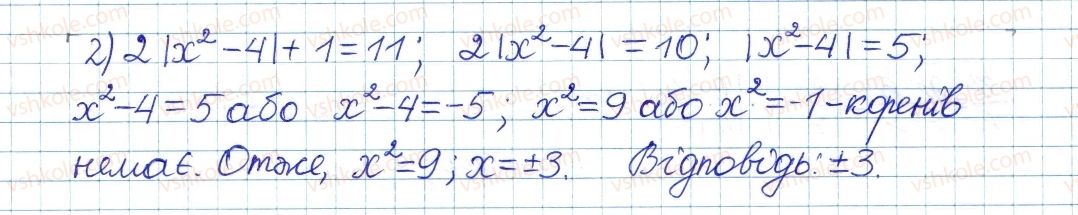 2) 2 |x² - 4| + 1 = 11; 2 |x² - 4| = 10; |x² - 4| = 5;
x² - 4 = 5 або x² - 4 = -5; x² = 9 або x² = -1 - коренів
немає. Отже, x² = 9; x = ±3. Відповідь: ±3.